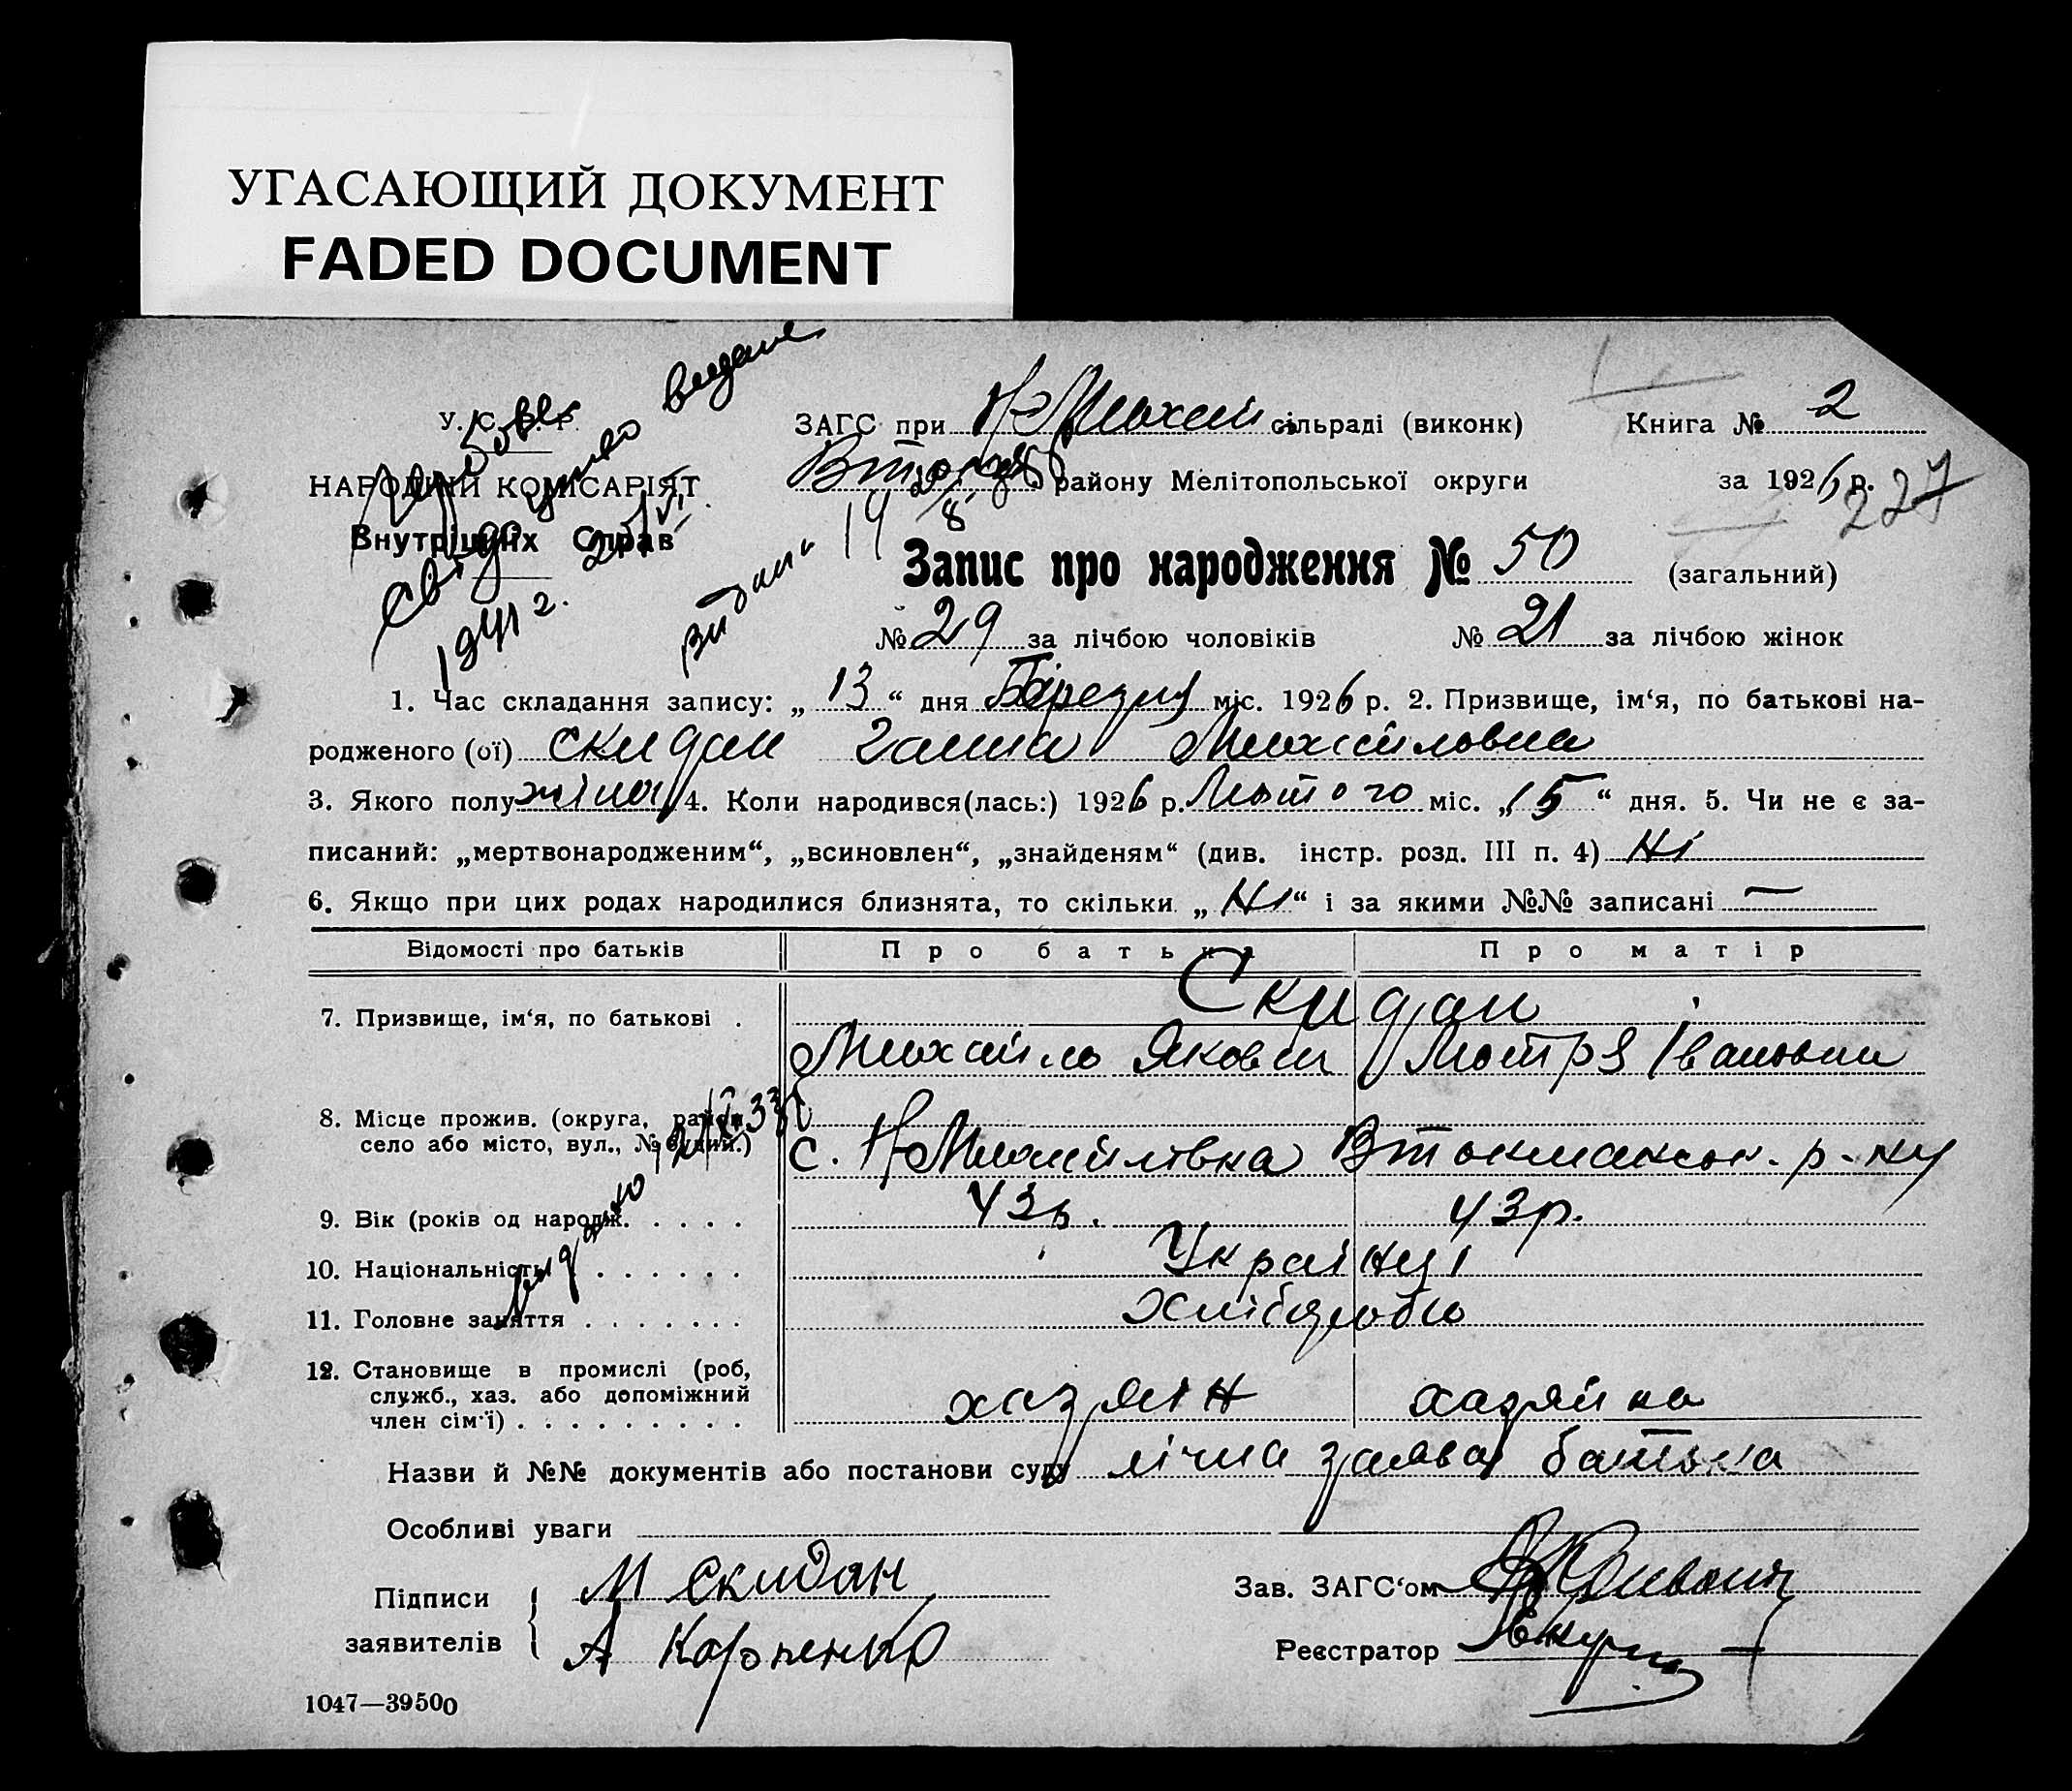 УГАСАЮЩИЙ ДОКУМЕНТ
FADED DOCUMENT
У. С. Р. Р.
НАРОДНІЙ КОМІСАРІЯТ
Внутрішніх Справ
ЗАГС при Н-Михай сільраді (виконк)
Книга № 2
району Мелітопольської округи
за 1926 р.
227
Запис про народження № 50 (загальний)
№ 29 за лічбою чоловіків № 21 за лічбою жінок
1. Час складання запису: „ 13 “ дня Березня міс. 1926 р. 2. Призвище, ім‘я, по батькові на-
родженого (ої) Скидан Ганна Михайловна
3. Якого полу жіноч 4. Коли народився(лась:) 1926 р. Лютого міс. „ 15 “ дня. 5. Чи не є за-
писаний: „мертвонародженим“, „всиновлен“, „знайденям“ (див. інстр. розд. III п. 4) Ні
6. Якщо при цих родах народилися близнята, то скільки „ Ні “ і за якими №№ записані —
Відомості про батьків Про батька Про матір
7. Призвище, ім‘я, по батькові . Скидан
Михайло Яковл Мотря Івановна
8. Місце прожив. (округа, район,
село або місто, вул., № будин.) с. Н-Михайлівка Втокмакск. р-ну
9. Вік (років од народж. . . . . 43 р. 43 р.
10. Національність . . . . . . Українці
11. Головне заняття . . . . . . . Хлібороби
12. Становище в промислі (роб,
служб., хаз. або допоміжний
член сім‘ї) . . . . . . . . . хазяін хазяйка
Назви й №№ документів або постанови суду лічна заява батька
Особливі уваги
Підписи заявителів
М Скидан
А Карпенко
Зав. ЗАГС‘ом
Реєстратор
1047—39500